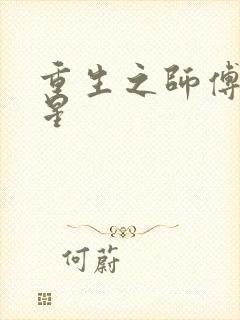 重生之師傅
星
何蔚